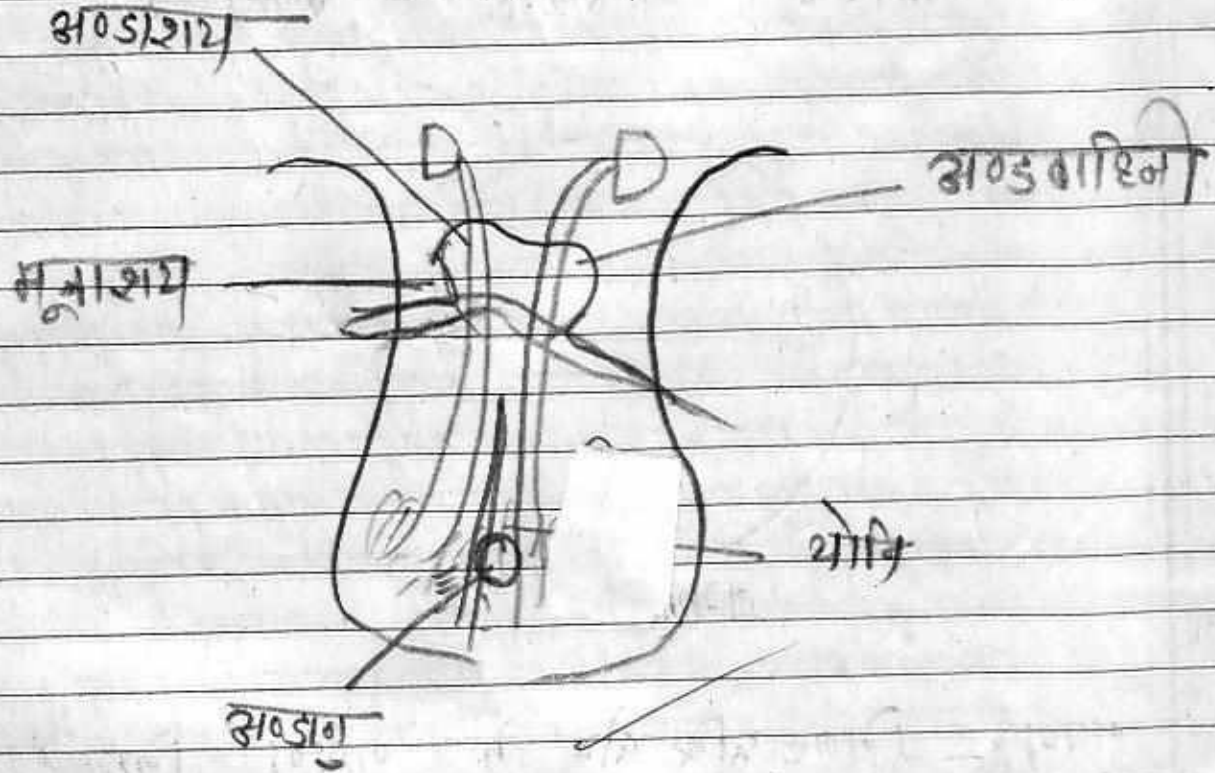 अण्डाशय
अण्डवाहिनी
मूत्राशय
योनि
अण्डाणु